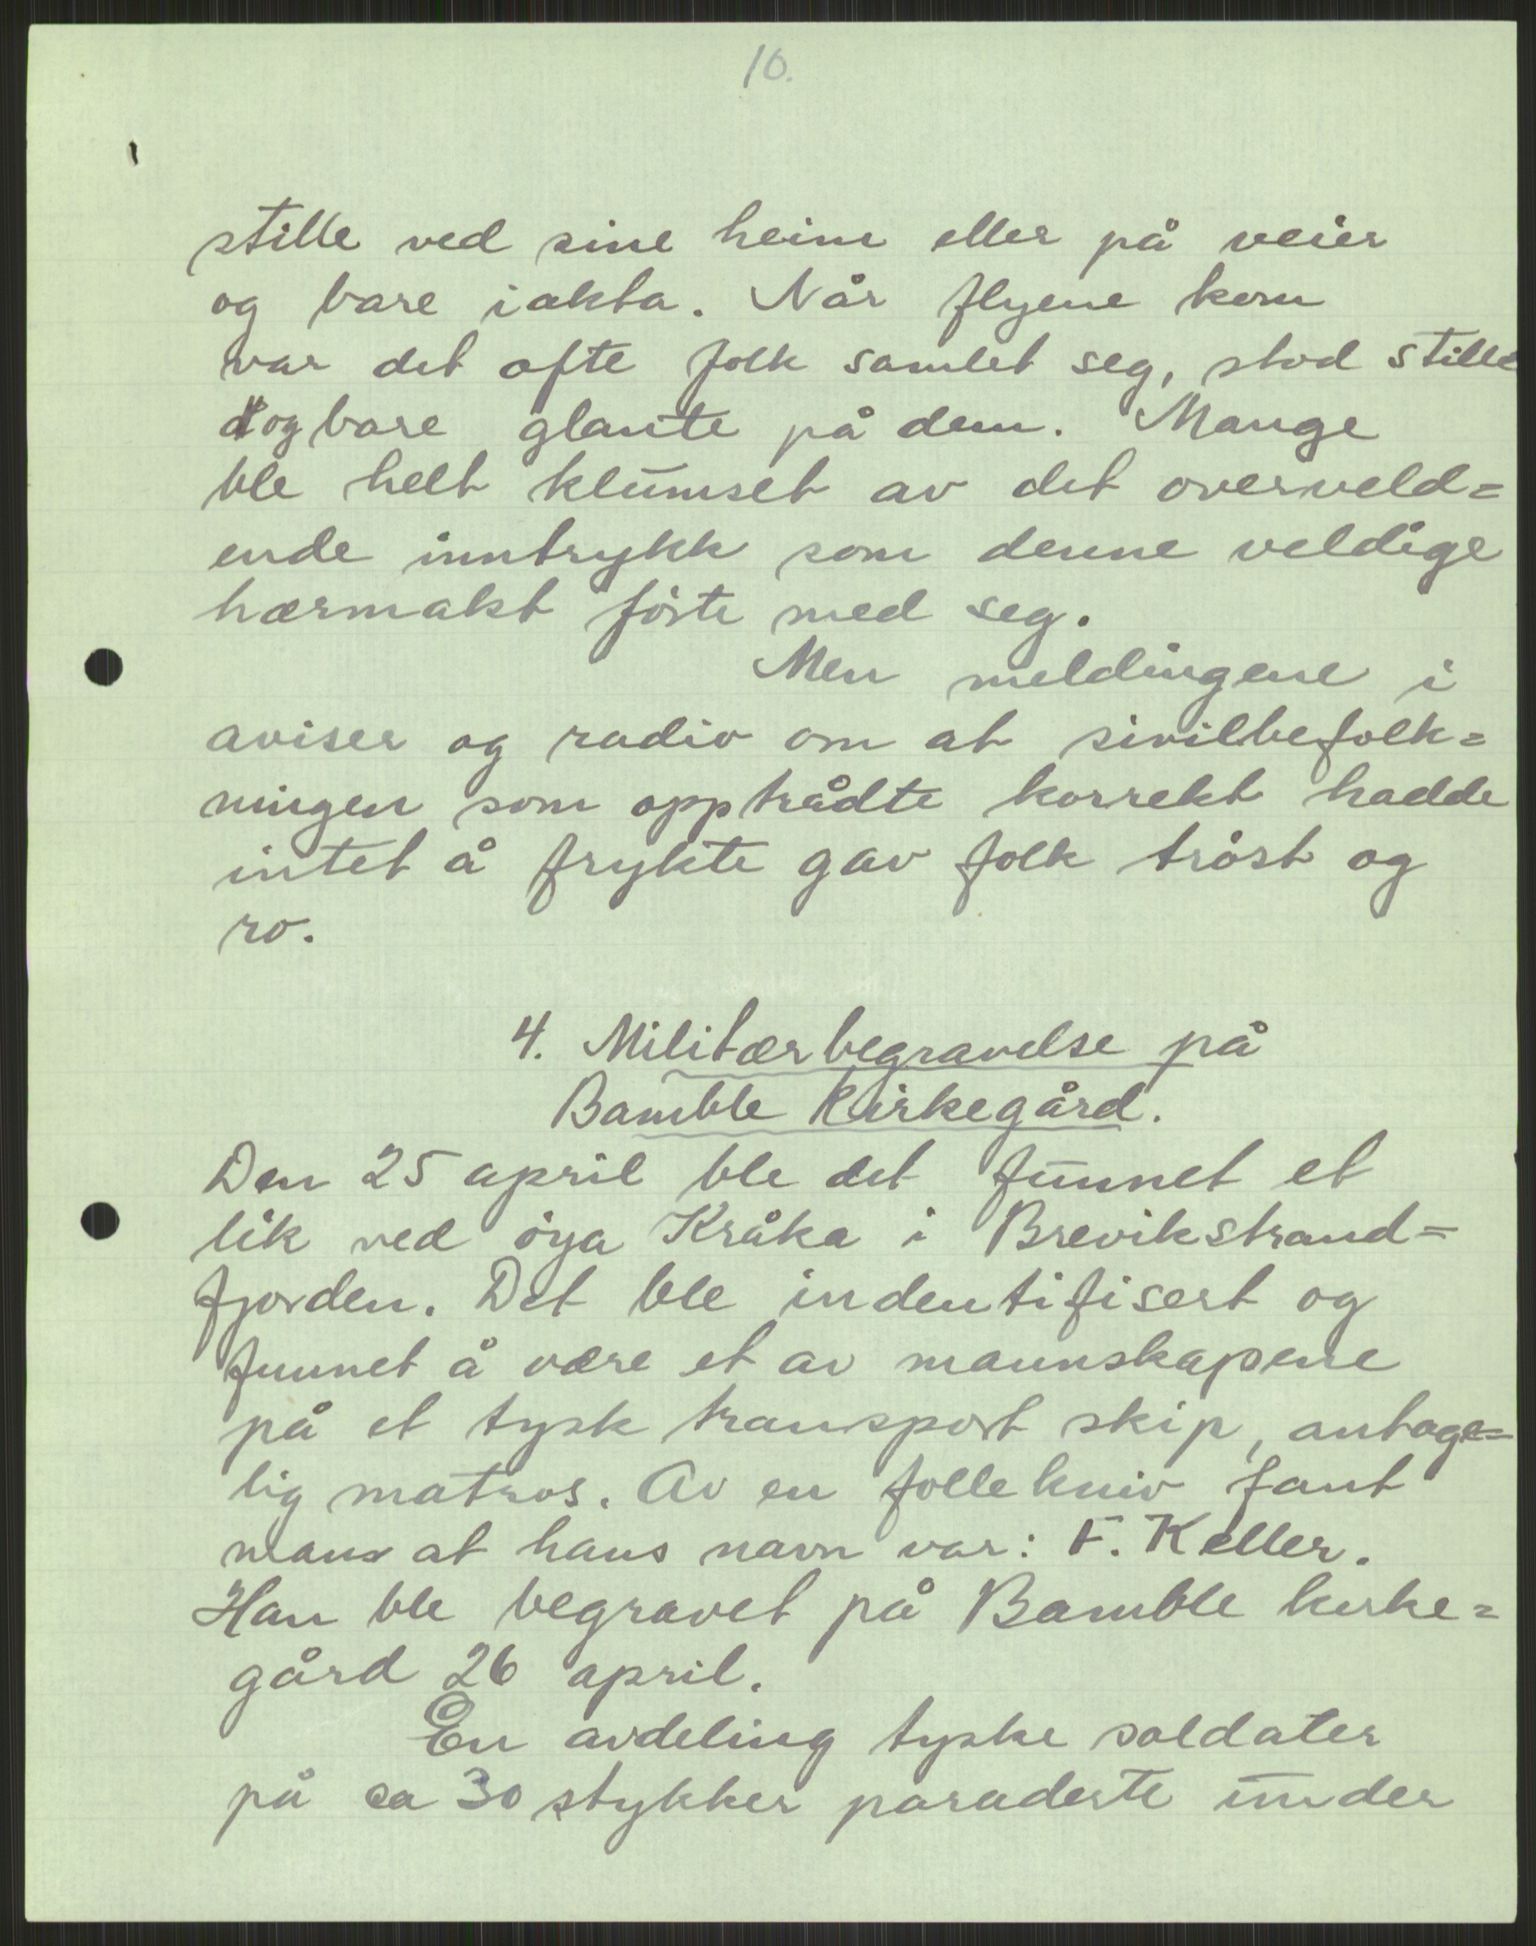 10.
stille ved sine heim eller på veier
og bare iakta. Når flyene kom
var det ofte folk samlet seg, stod stille
og bare glante på dem. Mange
ble helt klumset av det overveld=
ende inntrykk som denne veldige
hærmakt förte med seg.
Men meldingene i
aviser og radio om at sivilbefolk=
ningen som opptrådte korrekt hadde
intet å frykte gav folk tröst og
ro.
4. Militærbegravelse på
Bamble Kirkegård.
Den 25 april ble det funnet et
lik ved öya Kråka i Brevikstrand=
fjorden. Det ble indentifisert og
funnet å være et av mannskapene
på et tysk transport skip, antage=
lig matros. Av en follekniv fant
man at hans navn var: F. Keller.
Han ble begravet på Bamble kirke=
gård 26 april.
En avdeling tyske soldater
på ca 30 stykker paraderte under